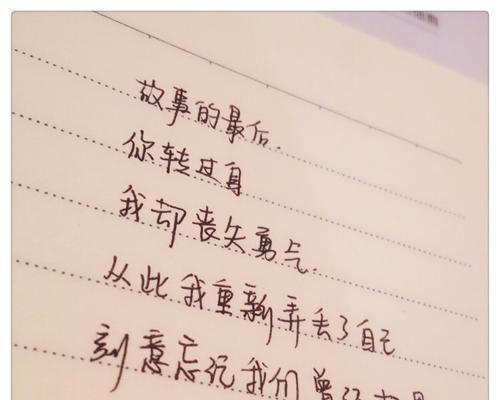 故事的最后.
你转过身
我却丧失勇气.
从此我重新弄丢了自己
刻意忘记我们曾经